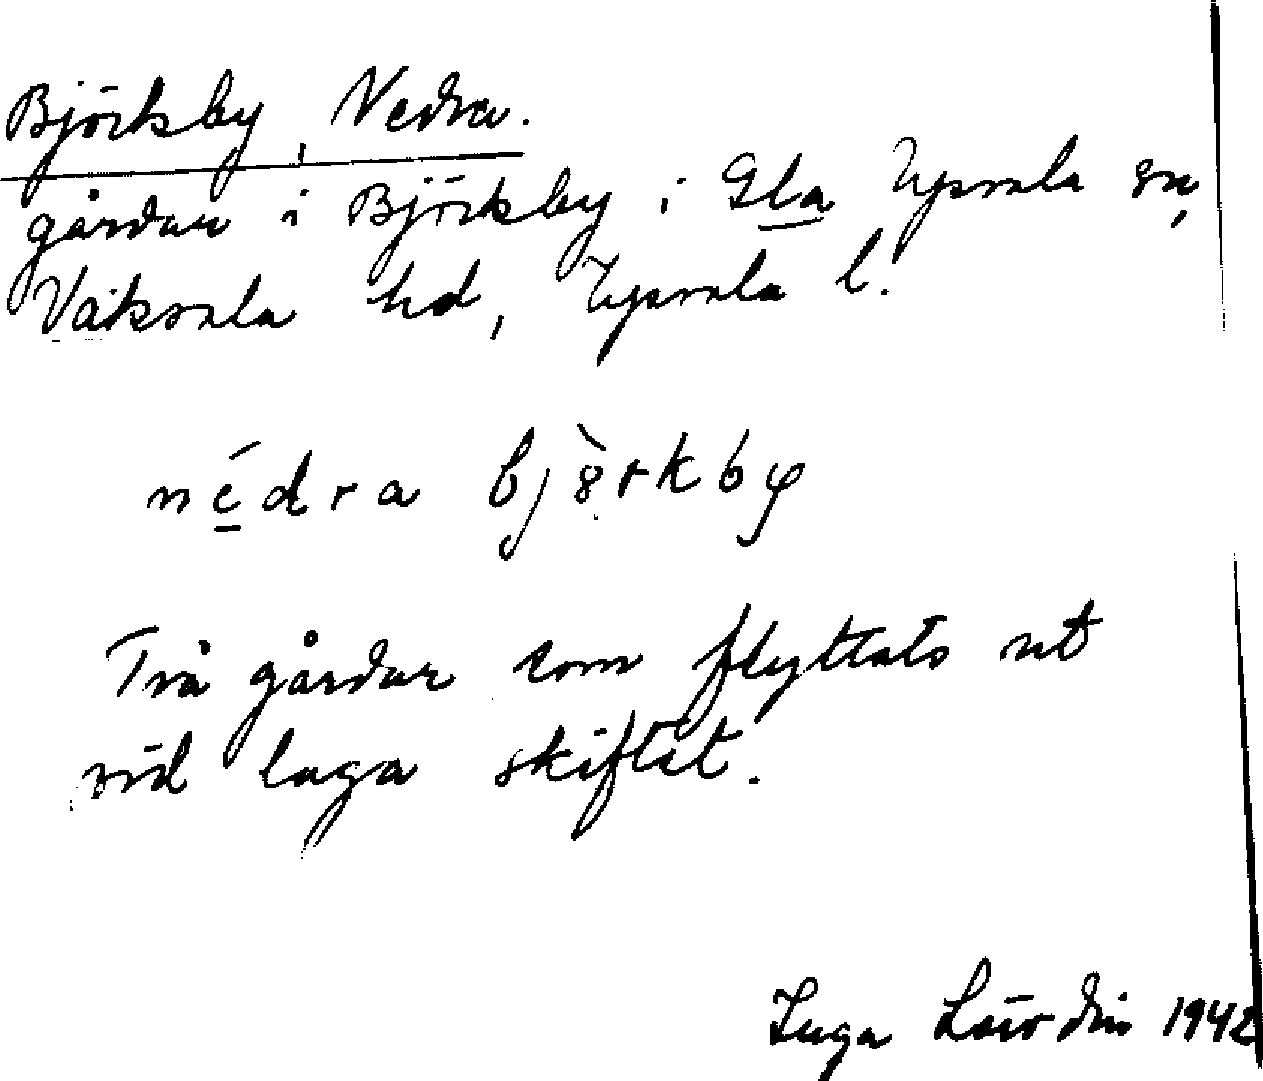 Björksby, Nedra.
gårdar i Björksby i Gla Upsala sn,
Vaksala hd, Upsala l.
nédra bjò̈rkby
Två gårdar som flyttats ut
vid laga skiftet.
Inga 1942